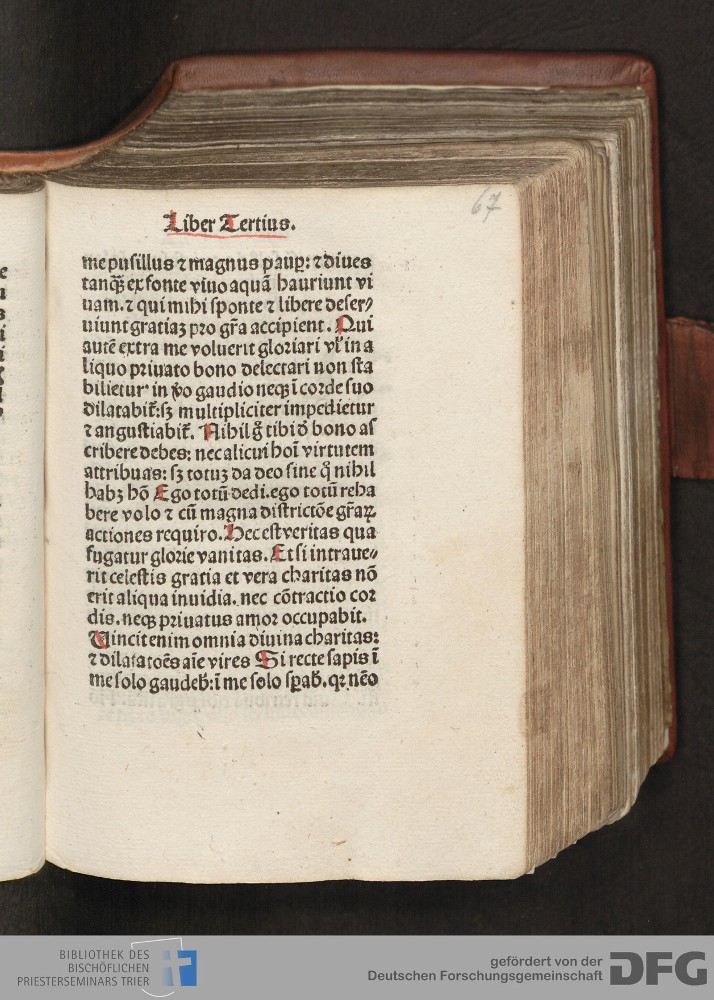 67
Liber Tertius.
me pusillus ⁊ magnus paup̲: ⁊ diues
tanqꝫ ex fonte viuo aquā hauriunt vi
uam. ⁊ qui mihi sponte ⁊ libere deser⸗
uiunt gratiaꝫ pro gr̄a accipient. Qui
autē extra me voluerit gloriari vl̓ in a
liquo priuato bono delectari non sta
bilietur in ṽo gaudio neqꝫ ī corde suo
dilatabit̄: sꝫ multipliciter impedietur
⁊ angustiabit̄. Nihil g̊ tibi d̓ bono as
cribere debes: nec alicui hoī virtutem
attribuas: sꝫ totuꝫ da deo sine q̊ nihil
habꝫ hō Ego totū dedi. ego totū reha
bere volo ⁊ cū magna districtōe gr̄aꝝ
actiones requiro. Hec est veritas qua
fugatur glorie vanitas. Et si intraue⸗
rit celestis gratia et vera charitas nō
erit aliqua inuidia. nec cōtractio cor
dis. neqꝫ priuatus amor occupabit.
Vincit enim omnia diuina charitas:
⁊ dilatat oēs aīe vires Si recte sapis ī
me solo gaudeb̓: ī me solo sꝑab̓. qꝛ nēo
BIBLIOTHEK DES
BISCHÖFLICHEN
PRIESTERSEMINARS TRIER
gefördert von der
Deutschen Forschungsgemeinschaft
DFG